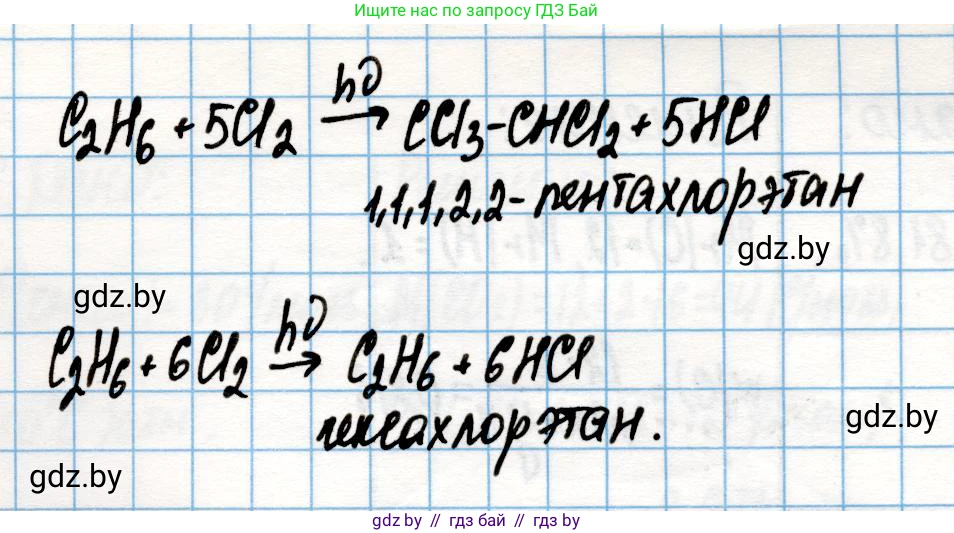 Ищите нас по запросу ГДЗ Бай
C₂H₆ + 5Cl₂ hν→ CCl₃-CHCl₂ + 5HCl
1,1,1,2,2-пентахлорэтан
gdz.by
gdz.by
C₂H₆ + 6Cl₂ hν→ C₂H₆ + 6HCl
гексахлорэтан.
gdz.by
gdz.by
gdz.by // гдз бай // гдз by